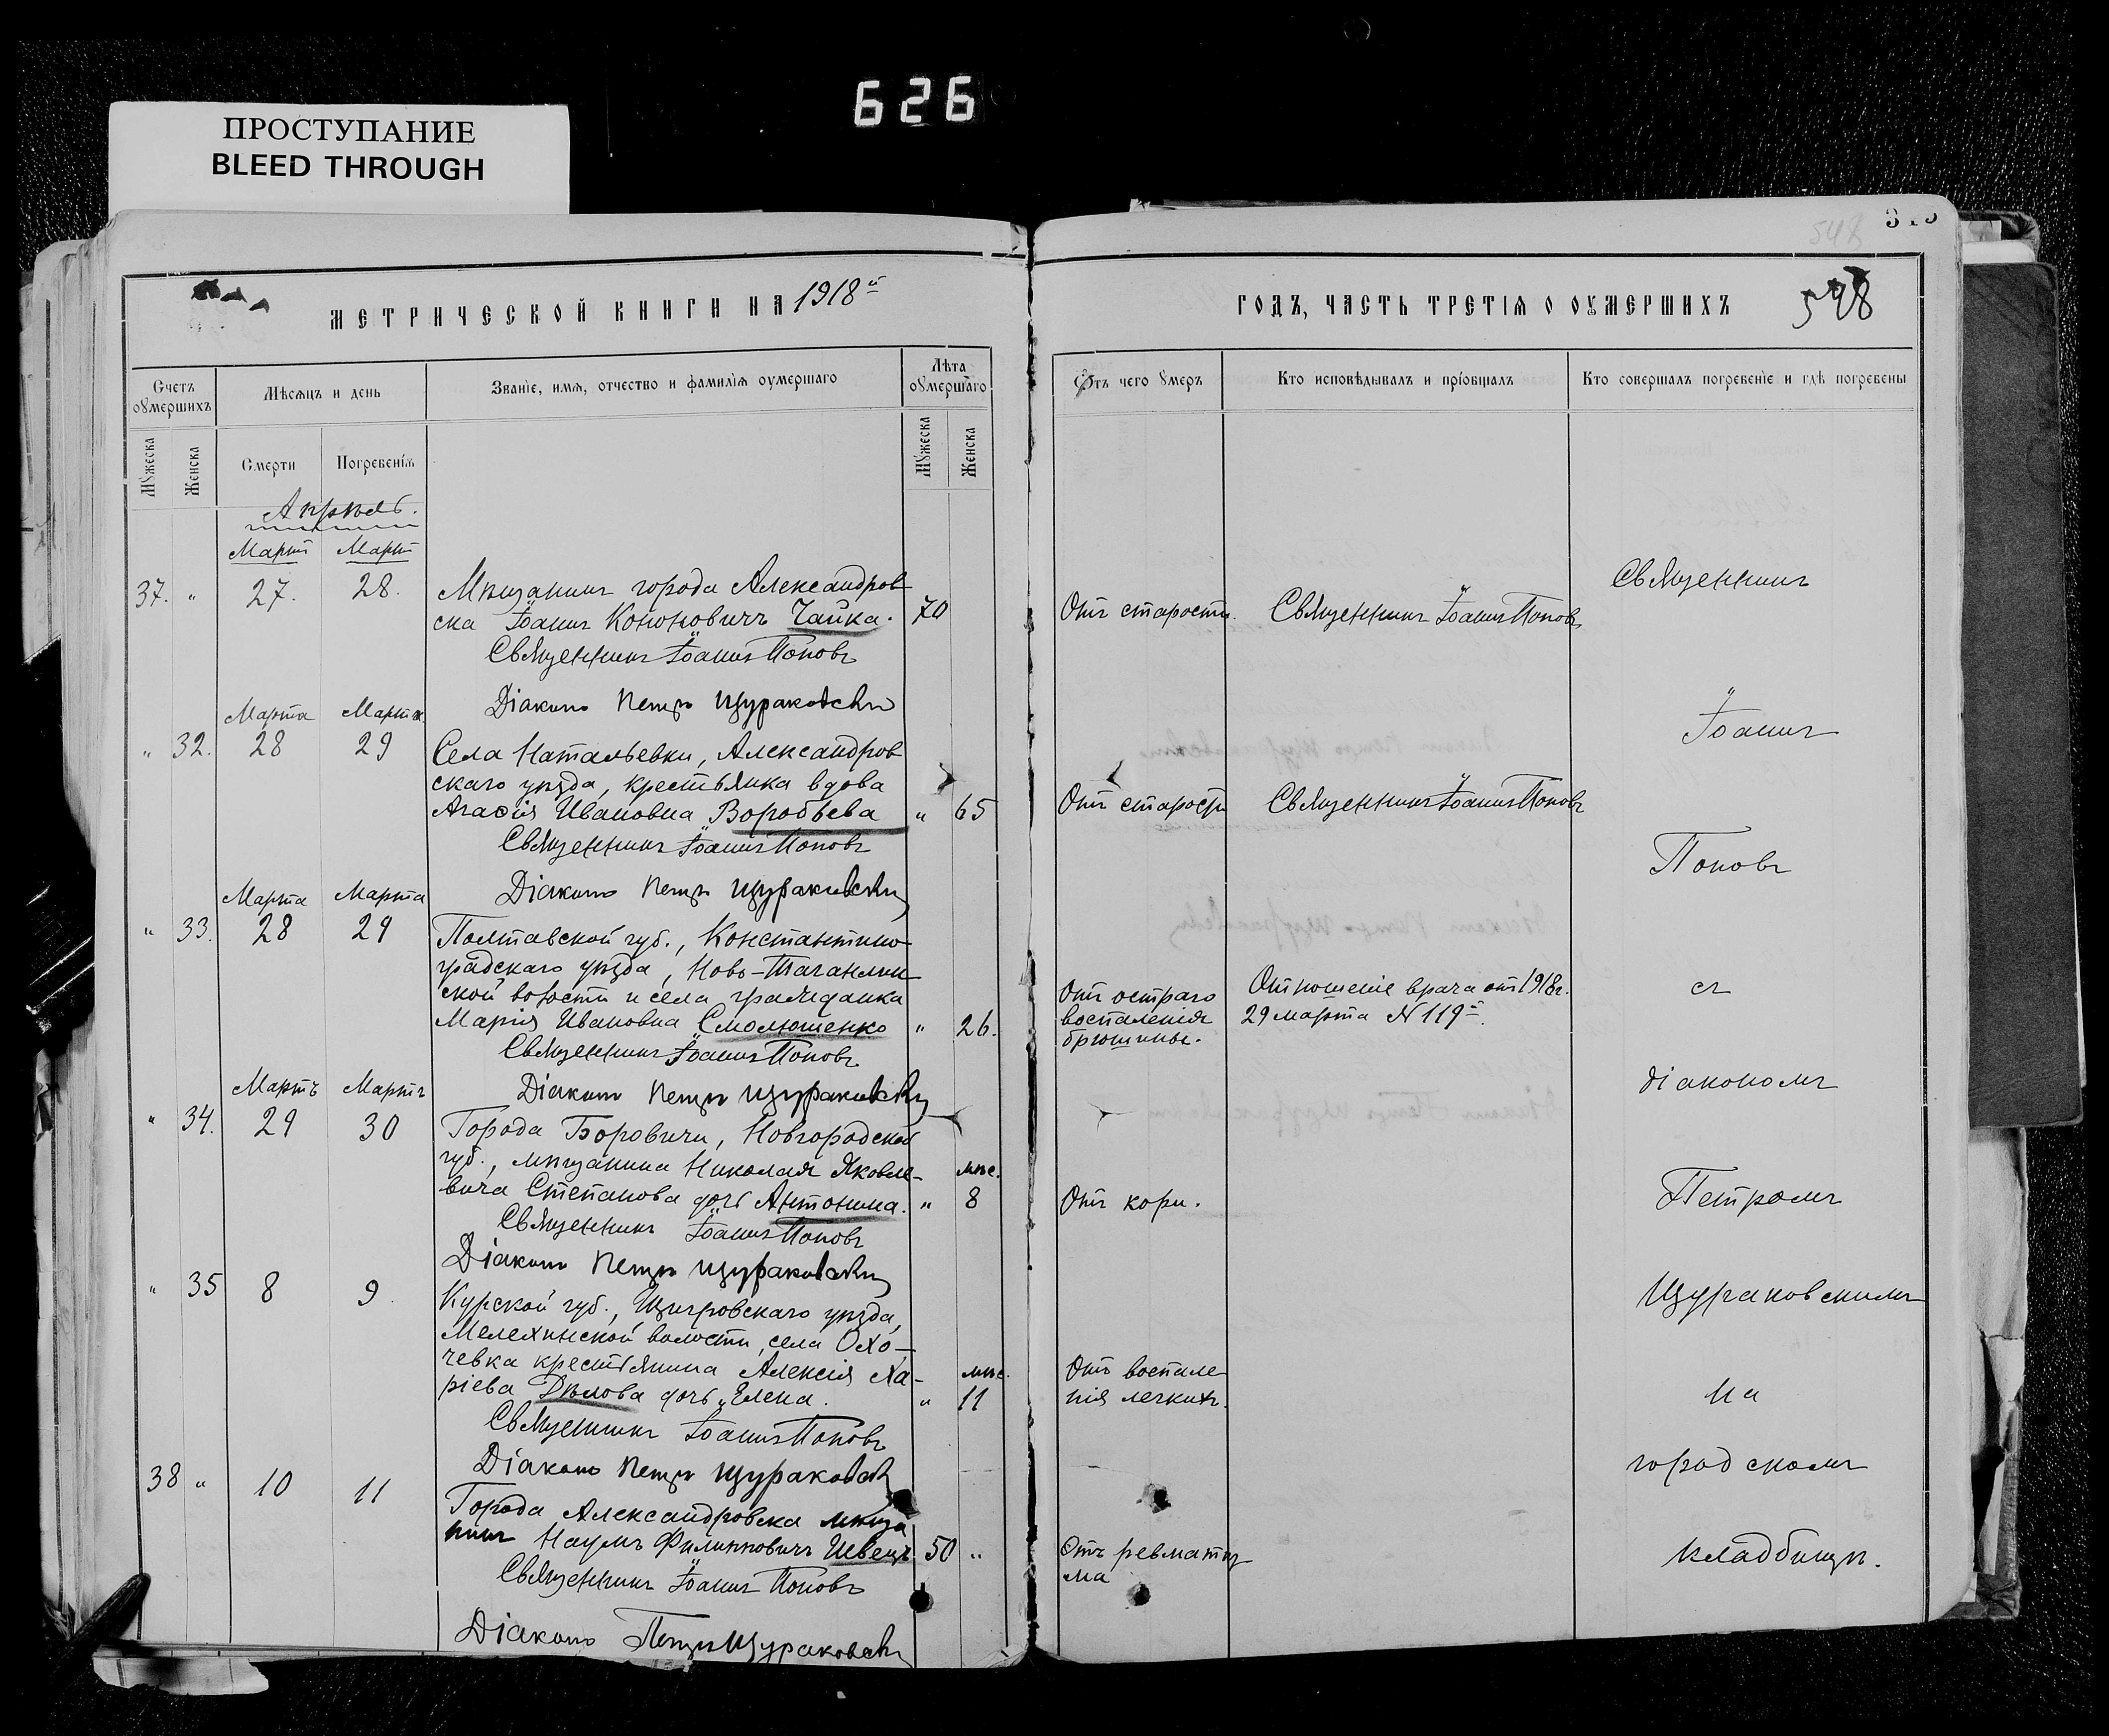 626
ПРОСТУПАНИЕ
BLEED THROUGH
МЕТРИЧЕСКОЙ КНИГИ НА 1918й
Счетъ оумершихъ
Мѣсяцъ и день
Званіе, имя, отчество и фамилія оумершаго
Лѣта оумершаго
Мужеска
Женска
Смерти
Погребенія
Мужеска
Женска
Апрѣль.
Мартъ Мартъ
37. " 27. 28. Мѣщанинъ города Александров
ска Іоаннъ Кононовичъ Чайка. 70
Священникъ Іоаннъ Поповъ
Діаконъ Петръ Щураковскій
Марта Марта
" 32. 28 29 Села Натальевки, Александров
скаго уѣзда, крестьянка вдова
Агафія Ивановна Воробьева " 65
Священникъ Іоаннъ Поповъ
Діаконъ Петръ Щураковскій
Марта Марта
" 33. 28 29 Полтавской губ., Константино
градскаго уѣзда, Ново-
ской волости и села гражданка
Марія Ивановна Смолюшенко " 26.
Священникъ Іоаннъ Поповъ
Діаконъ Петръ Щураковскій
Мартъ Мартъ
" 34. 29 30 Города Боровичи, Новгородской
губ., мѣщанина Николая Яковле-
вича Степанова дочь Антонина. " мѣс. 8
Священникъ Іоаннъ Поповъ
Діаконъ Петръ Щураковскій
" 35 8 9. Курской губ., Щигровскаго уѣзда,
Мелехинской волости, села Охо-
чевка крестьянина Алексія Ха-
ріева Дѣлова дочь Елена. " мѣс. 11
Священникъ Іоаннъ Поповъ
Діаконъ Петръ Щураковскій
38 " 10 11 Города Александровска мѣща
нинъ Наумъ Филипповичъ Швецъ 50 "
Священникъ Іоаннъ Поповъ
Діаконъ Петръ Щураковскій
548
ГОДЪ, ЧАСТЬ ТРЕТІЯ О ОУМЕРШИХЪ
548
Отъ чего умеръ
Кто исповѣдывалъ и пріобщалъ
Кто совершалъ погребеніе и гдѣ погребены
Отъ старости. Священникъ Іоаннъ Поповъ
Отъ старости Священникъ Іоаннъ Поповъ
Отъ остраго
воспаленія
брюшины.
Отношеніе врача отъ 1918г.
29 марта № 119й.
Отъ кори.
Отъ воспале
нія легкихъ.
Отъ ревматиз
ма
Священникъ
Іоаннъ
Поповъ
съ
діакономъ
Петромъ
Щураковскимъ
на
городскомъ
кладбищѣ.